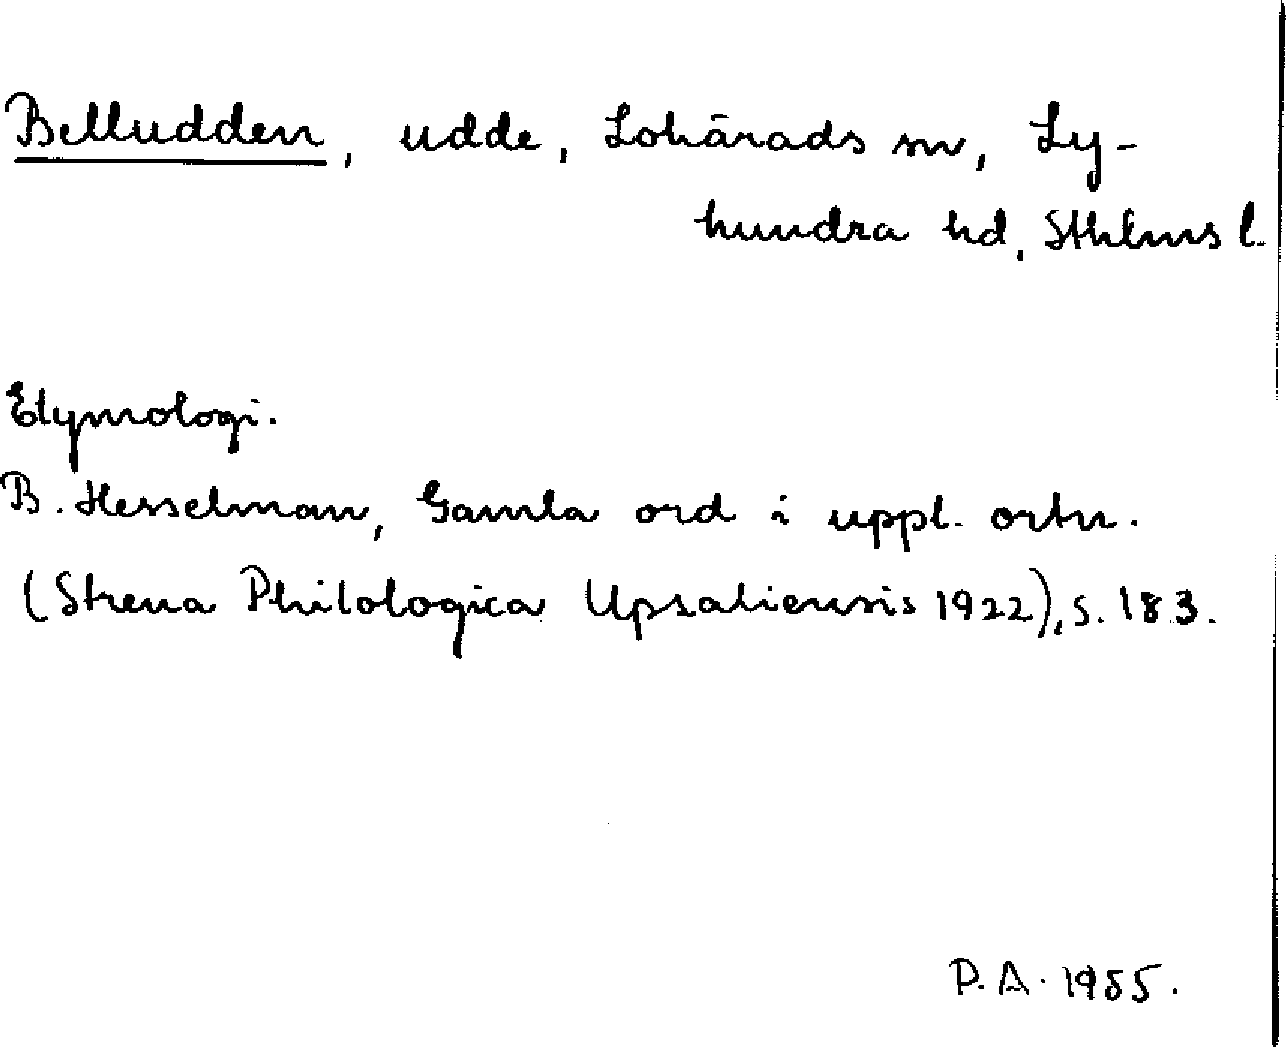 Belludden, udde, Lohärads sn, Ly-
hundra hd, Sthlms l.
Etymologi.
B. Hesselman, Gamla ord i uppl. ortn.
(Strena Philologica Upsaliensis 1922), s. 183.
P. A. 1955.